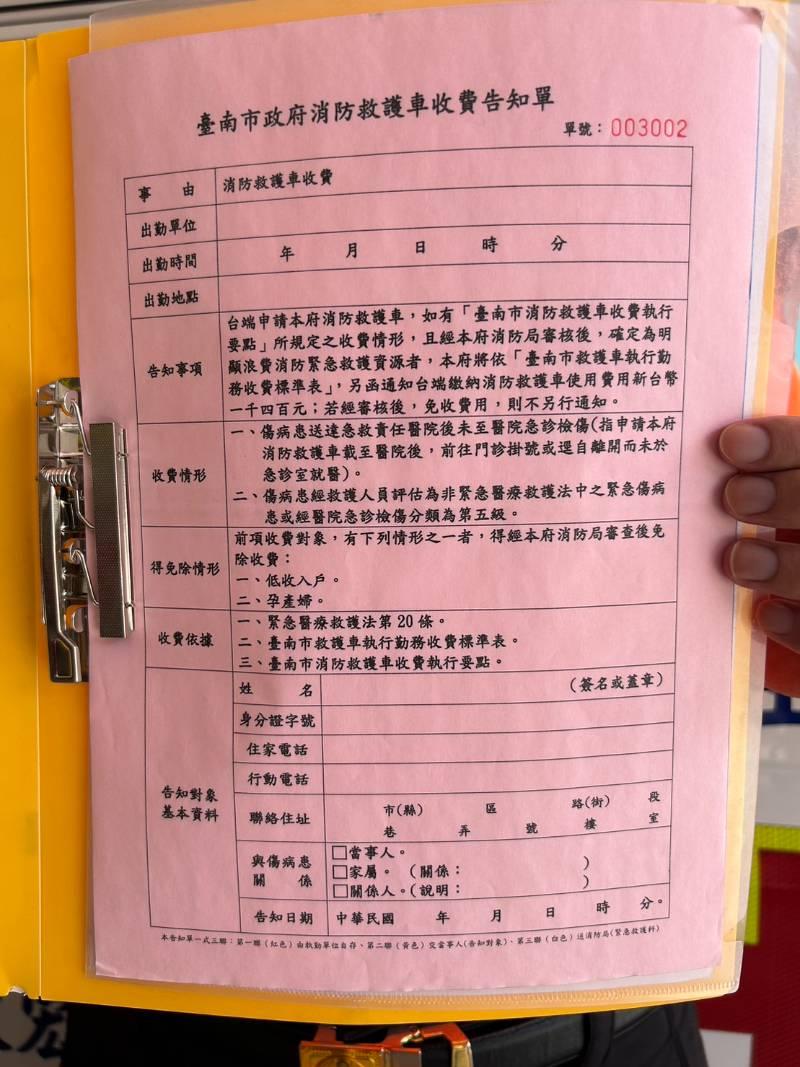 臺南市政府消防救護車收費告知單
單號：003002
事　由　消防救護車收費
出勤單位
出勤時間　年　月　日　時　分
出勤地點
告知事項
台端申請本府消防救護車，如有「臺南市消防救護車收費執行
要點」所規定之收費情形，且經本府消防局審核後，確定為明
顯浪費消防緊急救護資源者，本府將依「臺南市救護車執行勤
務收費標準表」，另函通知台端繳納消防救護車使用費用新台幣
一千四百元；若經審核後，免收費用，則不另行通知。
收費情形
一、傷病患送達急救責任醫院後未至醫院急診檢傷(指申請本府
消防救護車載至醫院後，前往門診掛號或逕自離開而未於
急診室就醫)。
二、傷病患經救護人員評估為非緊急醫療救護法中之緊急傷病
患或經醫院急診檢傷分類為第五級。
得免除情形
前項收費對象，有下列情形之一者，得經本府消防局審查後免
除收費：
一、低收入戶。
二、孕產婦。
收費依據
一、緊急醫療救護法第20條。
二、臺南市救護車執行勤務收費標準表。
三、臺南市消防救護車收費執行要點。
告知對象
基本資料
姓　名　（簽名或蓋章）
身分證字號
住家電話
行動電話
聯絡住址
市(縣)　區　路(街)　段
巷　弄　號　樓　室
與傷病患
關　係
□當事人。
□家屬。（關係：　）
□關係人。（說明：　）
告知日期　中華民國　年　月　日　時　分。
本告知單一式三聯：第一聯（紅色）由救勤單位自存、第二聯（黃色）交當事人(告知對象)、第三聯（白色）送消防局(緊急救護科)